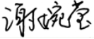 谢婉莹